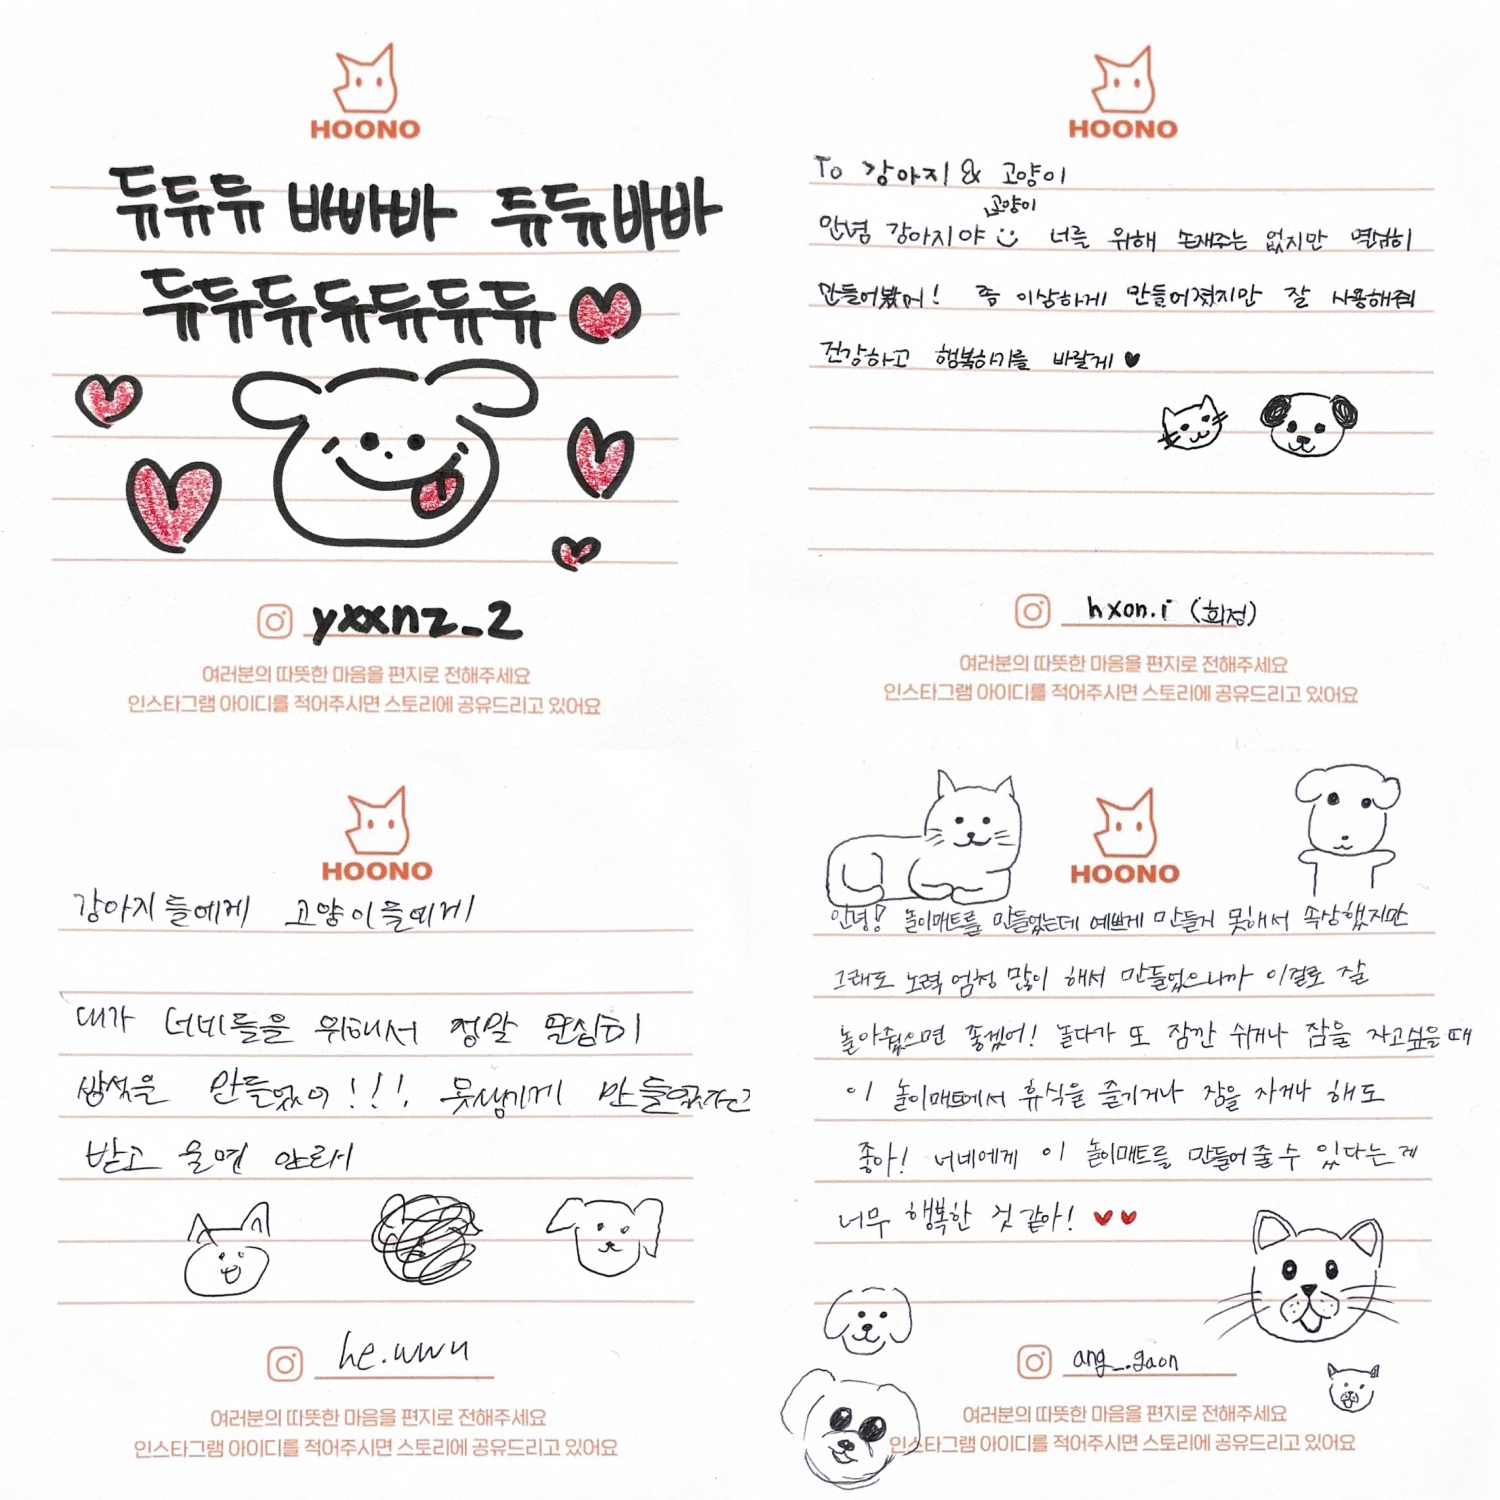 HOONO
듀듀듀 바바바 듀듀바바
듀듀듀듀듀듀듀
yxxnz_2
여러분의 따뜻한 마음을 편지로 전해주세요
인스타그램 아이디를 적어주시면 스토리에 공유드리고 있어요
HOONO
To 강아지 & 고양이
고양이
안녕 강아지야 너를 위해 손재주는 없지만 열심히
만들어봤어! 좀 이상하게 만들어졌지만 잘 사용해줘
건강하고 행복하기를 바랄게 ♥
hxon.i (희정)
여러분의 따뜻한 마음을 편지로 전해주세요
인스타그램 아이디를 적어주시면 스토리에 공유드리고 있어요
HOONO
강아지들에게 고양이들에게
내가 너네들을 위해서 정말 열심히
방석을 만들었어!!! 못생기게 만들었다고
받고 울면 안돼
he.wwu
여러분의 따뜻한 마음을 편지로 전해주세요
인스타그램 아이디를 적어주시면 스토리에 공유드리고 있어요
HOONO
안녕! 놀이매트를 만들었는데 예쁘게 만들지 못해서 속상했지만
그래도 노력 엄청 많이 해서 만들었으니까 이걸로 잘
놀아줬으면 좋겠어! 놀다가 또 잠깐 쉬거나 잠을 자고싶을 때
이 놀이매트에서 휴식을 즐기거나 잠을 자거나 해도
좋아! 너네에게 이 놀이매트를 만들어 줄 수 있다는게
너무 행복한 것 같아! ♥♥
ang_.gaon
여러분의 따뜻한 마음을 편지로 전해주세요
인스타그램 아이디를 적어주시면 스토리에 공유드리고 있어요